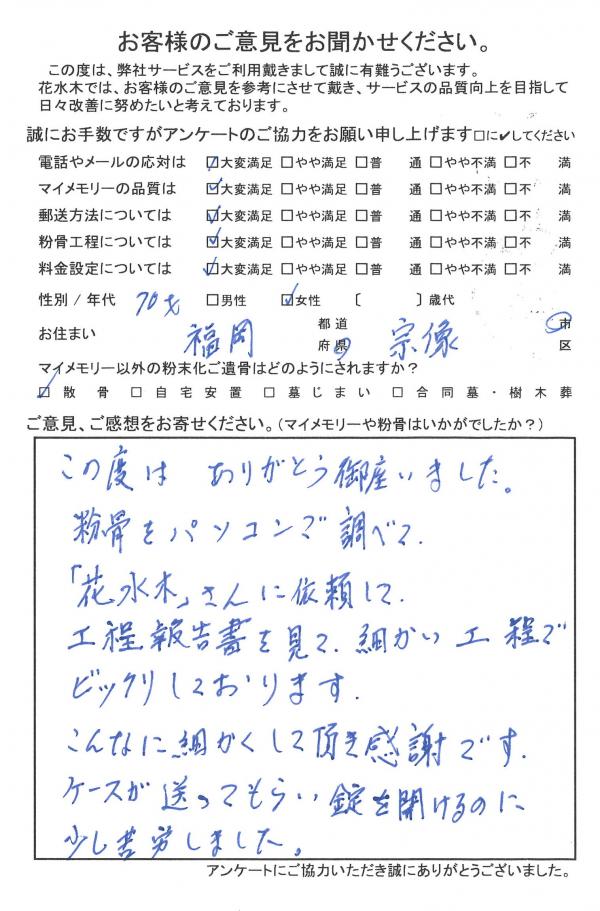 お客様のご意見をお聞かせください。
この度は、弊社サービスをご利用戴きまして誠に有難うございます。
花水木では、お客様のご意見を参考にさせて戴き、サービスの品質向上を目指して
日々改善に努めたいと考えております。
誠にお手数ですがアンケートのご協力をお願い申し上げます□に✔してください
電話やメールの応対は ☑大変満足 □やや満足 □普 通 □やや不満 □不 満
マイメモリーの品質は ☑大変満足 □やや満足 □普 通 □やや不満 □不 満
郵送方法については ☑大変満足 □やや満足 □普 通 □やや不満 □不 満
粉骨工程については ☑大変満足 □やや満足 □普 通 □やや不満 □不 満
料金設定については ☑大変満足 □やや満足 □普 通 □やや不満 □不 満
性別 / 年代 70才 □男性 ☑女性 〔 〕歳代
お住まい 福岡 都道府県 宗像 市区
マイメモリー以外の粉末化ご遺骨はどのようにされますか？
☑散骨・□自宅安置 □墓じまい □合同墓・樹木葬
ご意見、ご感想をお寄せください。(マイメモリーや粉骨はいかがでしたか？)
この度は ありがとう御座いました。
粉骨をパソコンで調べて.
「花水木」さんに依頼して.
工程報告書を見て.細かい工程で
ビックリしております.
こんなに細かくして頂き感謝です.
ケースが送ってもらい錠を開けるのに
少し苦労しました。
アンケートにご協力いただき誠にありがとうございました。